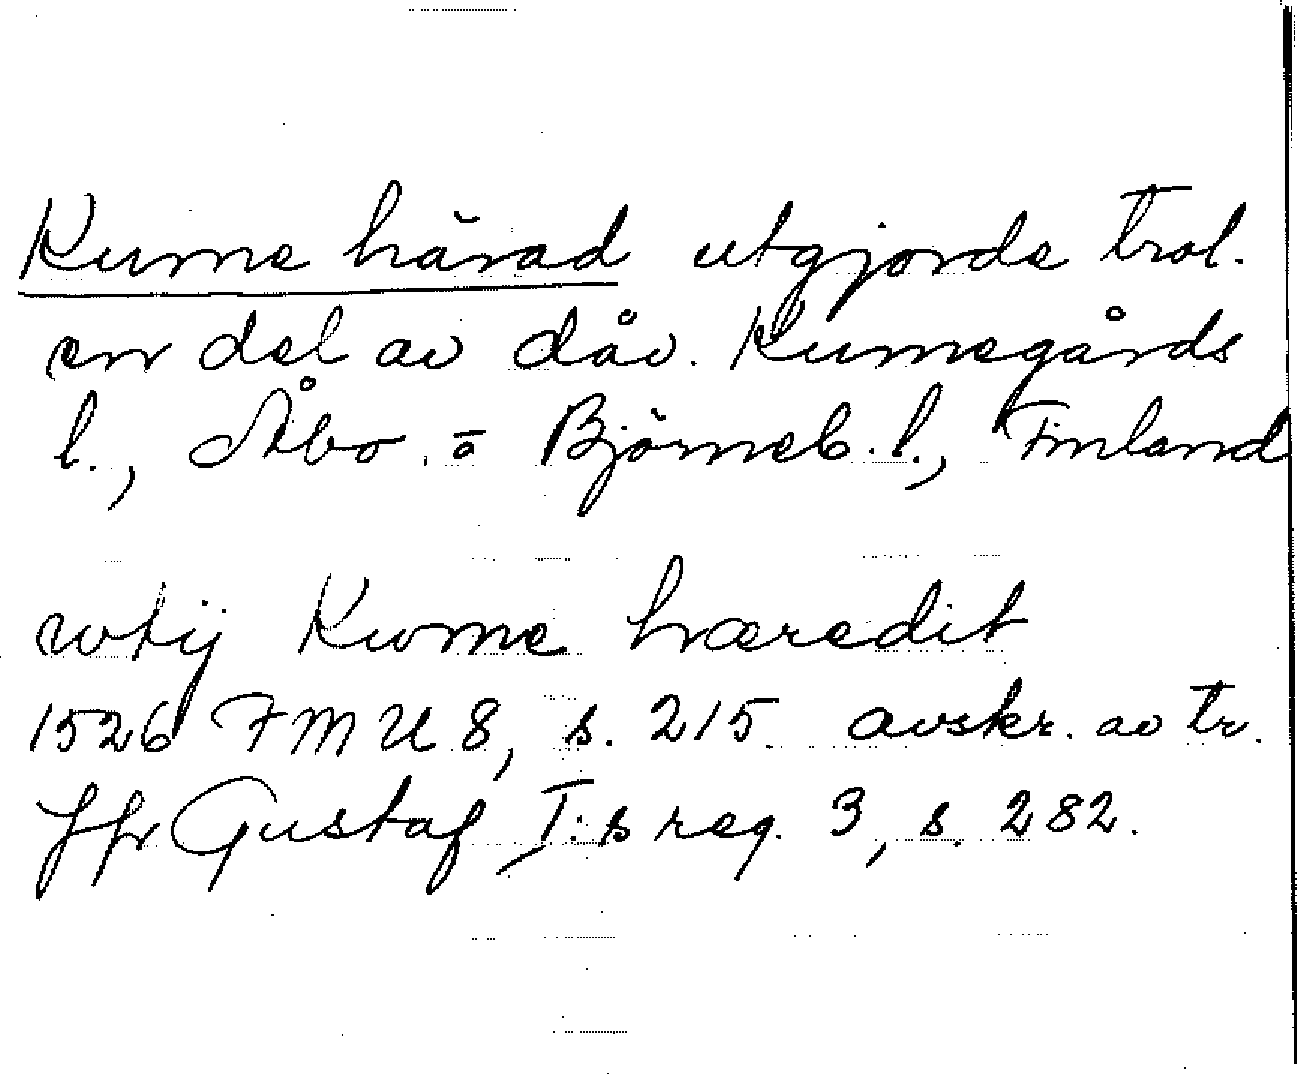 Kume härad utgjorde trol.
en del av dåv. Kumogårds
l., Åbo. o Björneb. l., Finland
wtij Kwme hæredit
1526 FMU 8, s. 215 avskr. av tr.
Jfr Gustaf I:s reg. 3, s. 282.